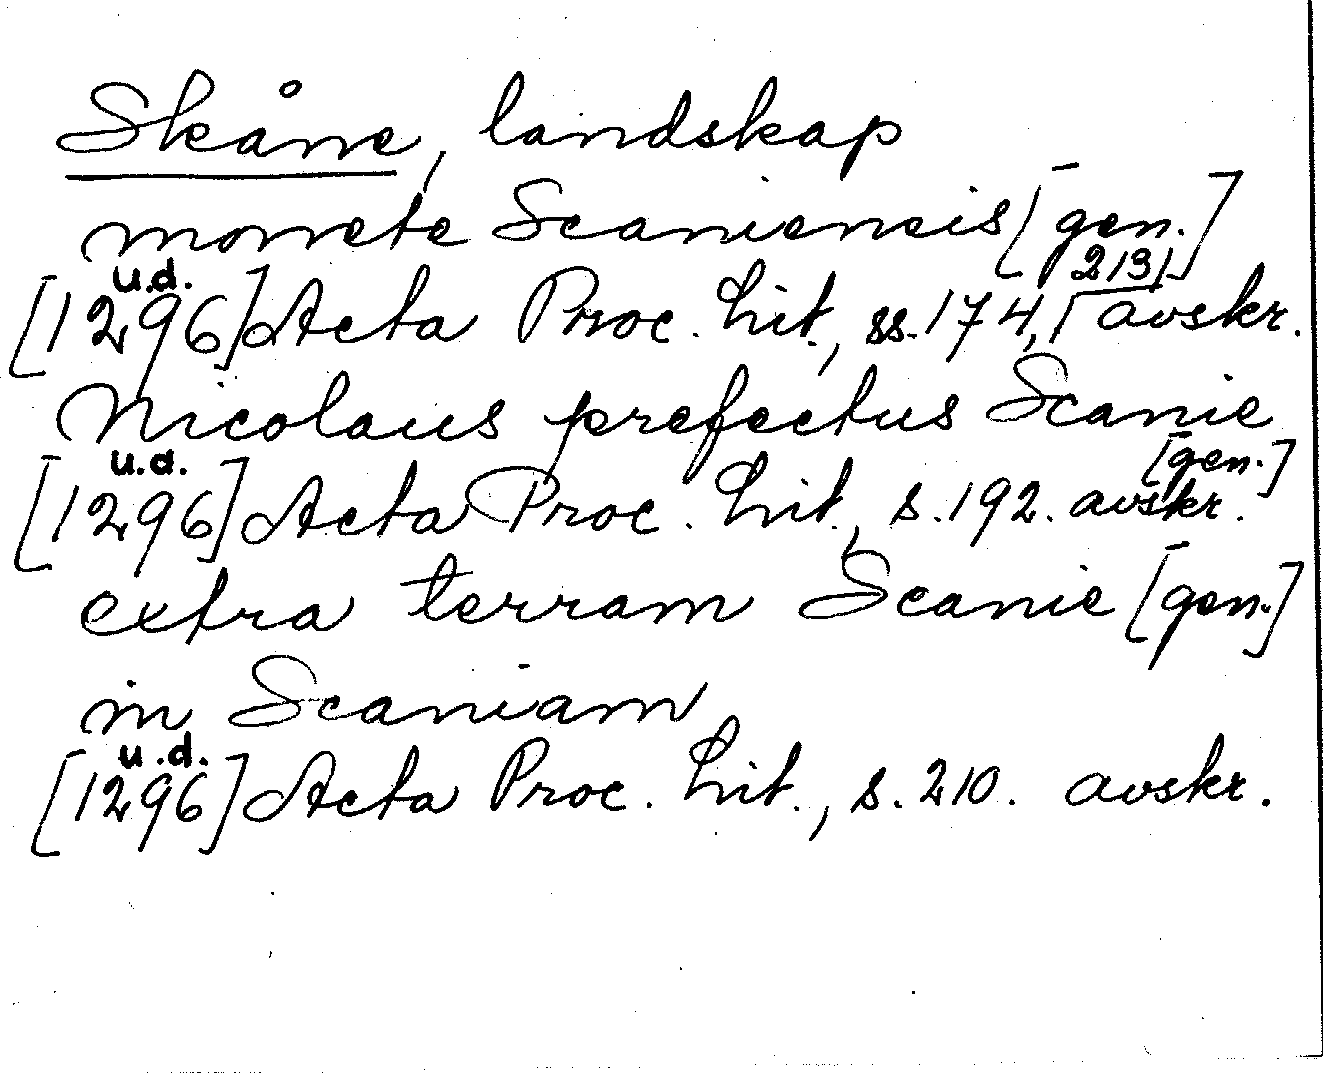 Skåne, landskap
monete Scaniensis [gen.]
[1296] u.d. Acta Proc. Lit., ss. 174, 213, avskr.
Nicolaus prefectus Scanie [gen.]
[1296] u.d. Acta Proc. Lit., s. 192. avskr.
extra terram Scanie [gen.]
in Scaniam
[1296] u.d. Acta Proc. Lit., s. 210. avskr.